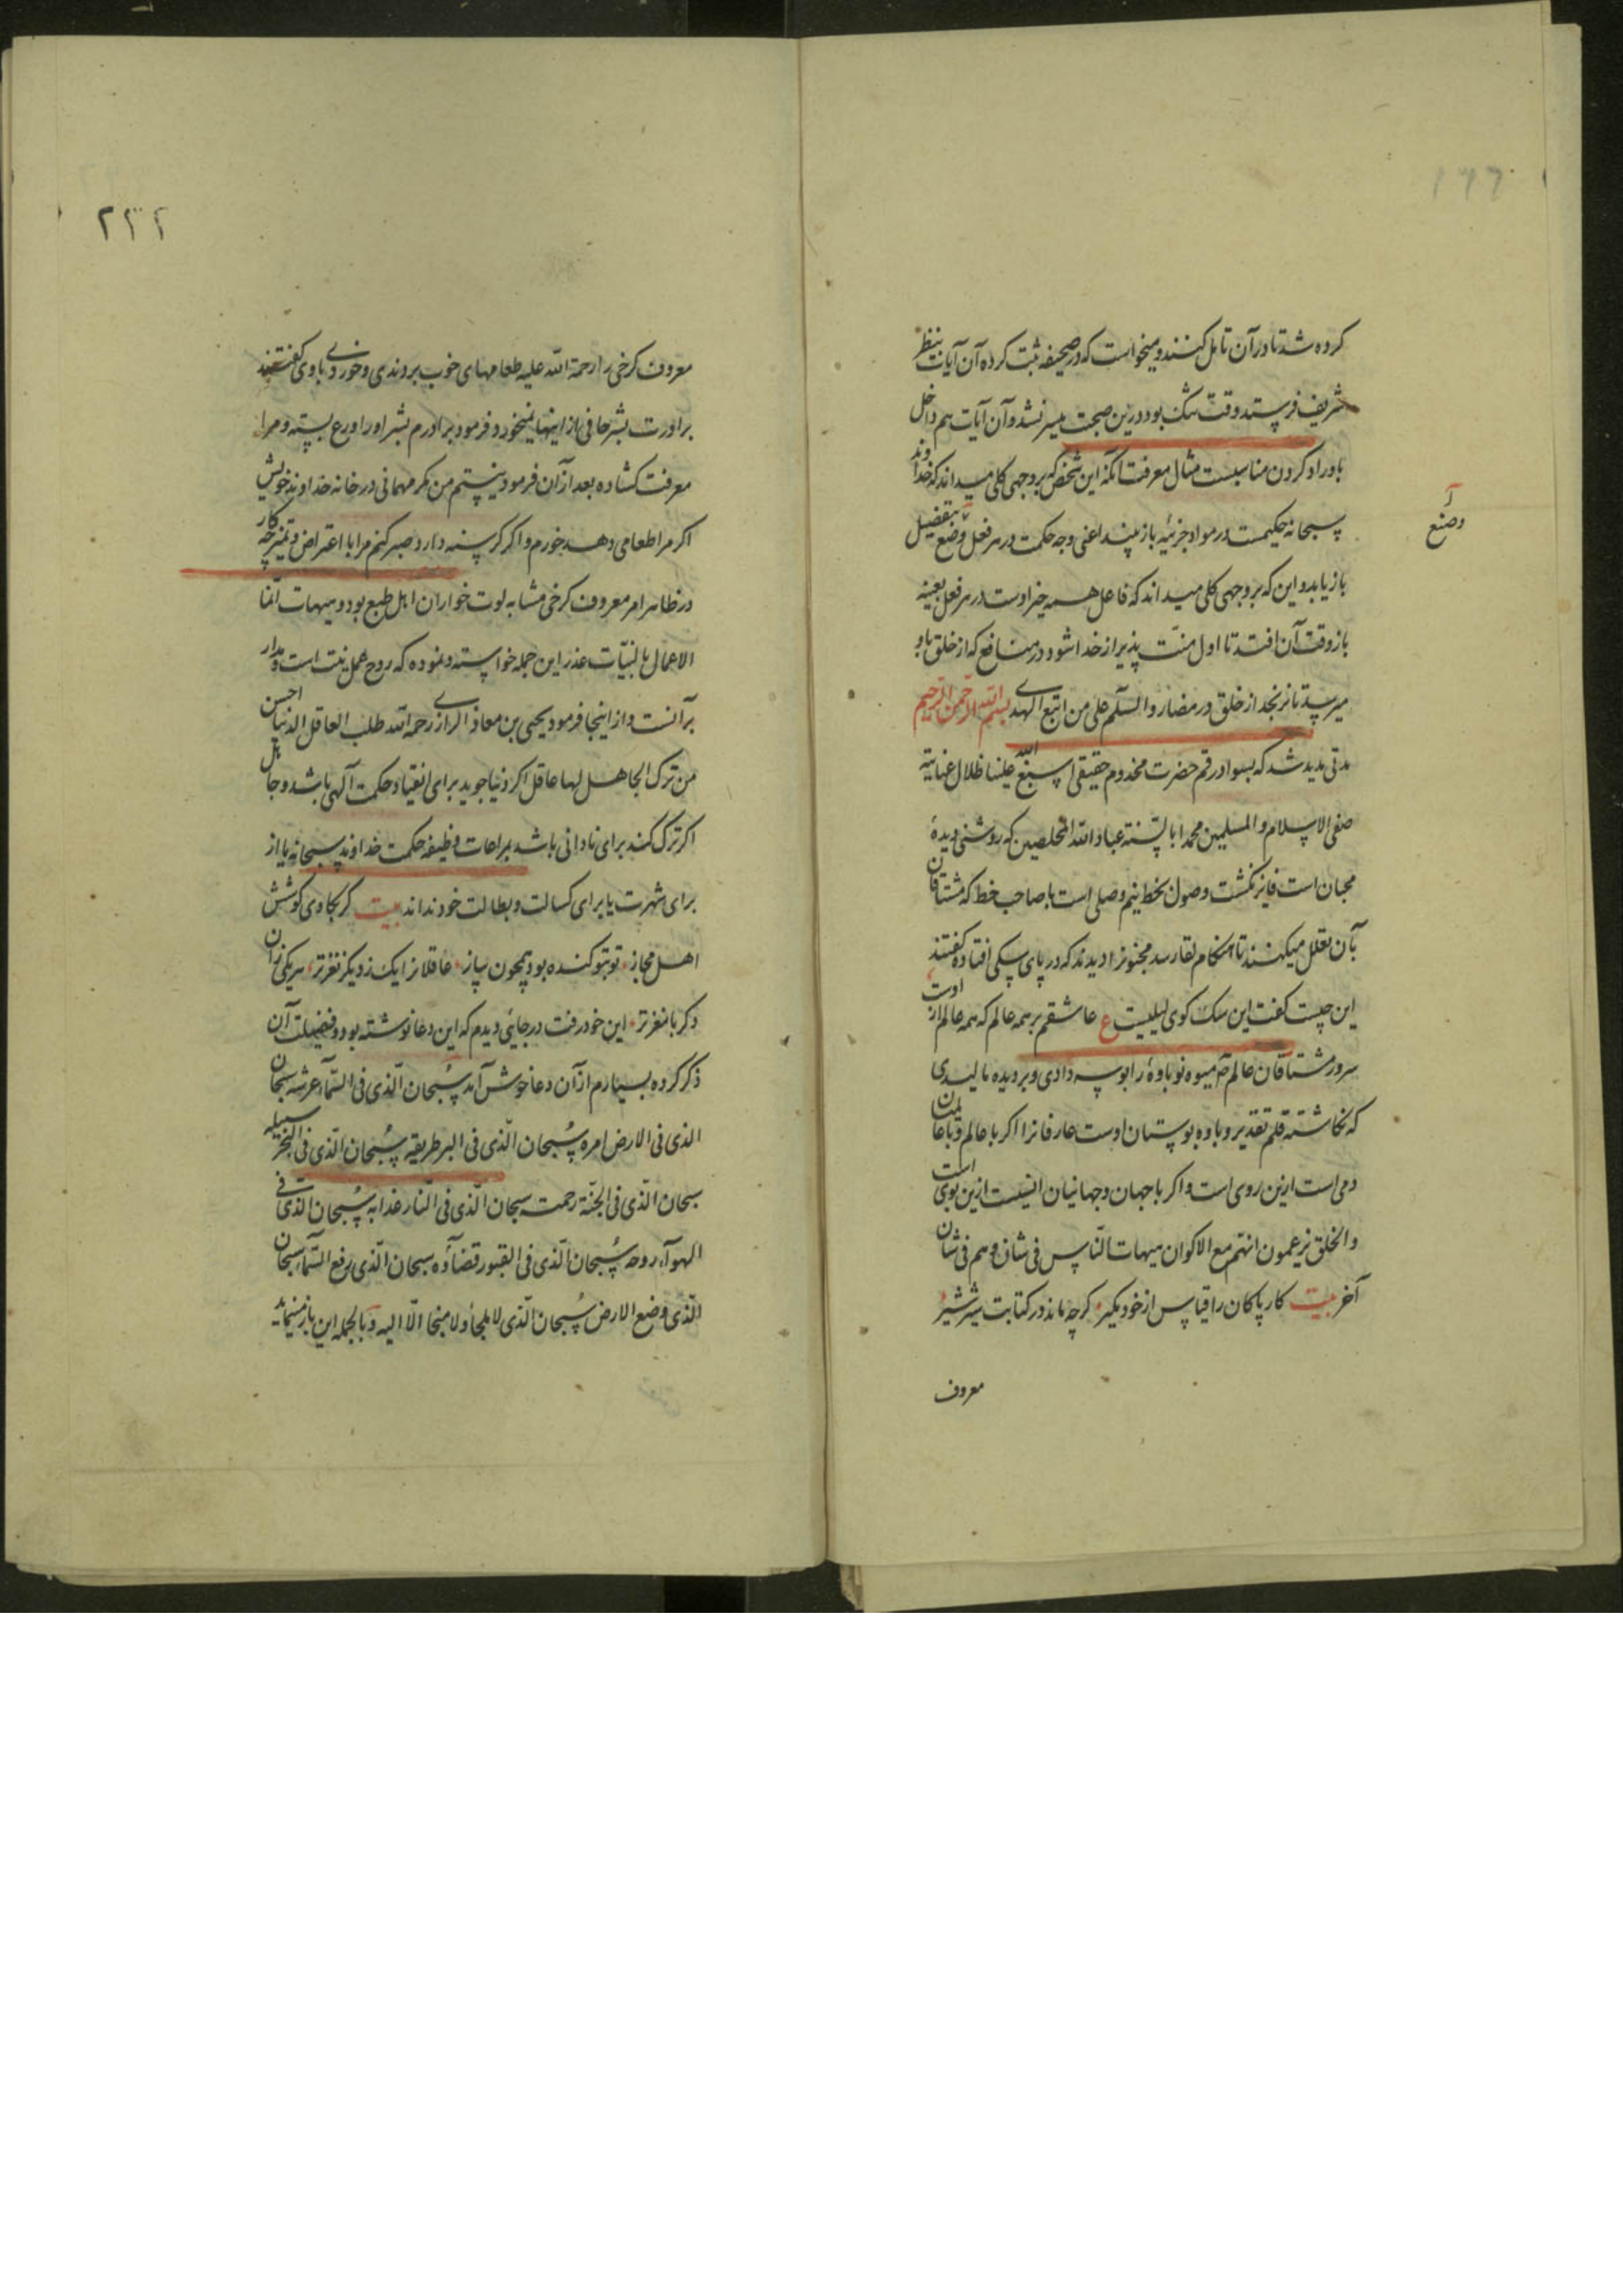 ۱۶۶
کرده شد تا در آن تامل کنند و میخواست که در صحیفه ثبت کرده آن آیات بنظر
شریف فرستد وقت تنک بود درین صحبت میسر نشد و آن آیات هم داخل
باوراد کردن مناسبست مثال معرفت آنکه این شخص که بر وجهی کلی میداند که خداوند
سبحانه حکیمست در مواد جزئیه باز بیند اعنی وجه حکمت در هر فعل و وضع بتفصیل
وصنع
باز یابد و این که بر وجهی کلی میداند که فاعل همه خیر اوست در هر فعل بعینه
باز وقت آن افتد تا اول منت پذیر از خدا شود در منافع که از خلق باو
میرسد تا نرنجد از خلق در مضار والسلم علی من اتبع الهدی بسم الله الرحمن الرحیم
مدتی مدید شد که بسواد رقم حضرت مخدوم حقیقی اسبغ الله علینا ظلال عنایته
صفی الاسلام والمسلمین محمد ابا لسنة عباد الله المخلصین که روشنی دیدۀ
محبان است فایز نکشت وصول بخط نیم وصلی است با صاحب خط که مشتاقان
بآن تعلل میکنند تا هنکام لقا رسد مجنونرا دیدند که در پای سکی افتاده کفتند
این چیست کفت این سک کوی لیلیست ع عاشقم بر همه عالم که همه عالم ازوست
سرور مشتاقان عالم هر میوه نوباوۀ را بوسه دادی و بر دیده مالیدی
که نکاشته قلم تقدیر و باوه بوستان اوست عارفانرا اکر با عالم و با عالمیان
دمی است ازین روی است و اکر با جهان و جهانیان انسیست ازین بوی است
والخلق یزعمون انهم مع الاکوان هیهات الناس فی شان و هم فی شان
آخر بیت کار پاکان را قیاس از خود مکیر کرچه ماند در کتابت شیر شیر
معروف
۲۳۲
معروف کرخی را رحمة الله علیه طعامهای خوب بردندی و خوردی باوی کفتند
برادرت بشر حافی از اینها نمیخورد فرمود برادرم بشر را ورع بسته و مرا
معرفت کشاده بعد از آن فرمود نیستم من مکر مهمانی در خانه خداوند خویش
اکر مرا طعامی دهد خورم و اکر کرسنه دارد صبر کنم مرا با اعتراض و تمیز چه کار
در ظاهر امر معروف کرخی مشابه لوت خواران اهل طبع بود و هیهات انما
الاعمال بالنیات عذر این جمله خواسته و نموده که روح عمل نیت است و مدار
بر آنست و از اینجا فرمود یحیی بن معاذ الرازی رحمه الله طلب العاقل الدنیا احسن
من ترک الجاهل لها عاقل اکر دنیا جوید برای انقیاد حکمت آلهی باشد و جاهل
اکر ترک کند برای نادانی باشد بمراعات وظیفه حکمت خداوند سبحانه یا از
برای شهرت یا برای کسالت و بطالت خود نداند بیت کر بکاوی کوشش
اهل مجاز تو بتو کنده بود همچون پیاز عاقلانرا یک ز دیکر نغزتر هر یکی زان
دکر بامغزتر این خود رفت در جایی دیدم که این دعا نوشته بود و فضیلت آن
ذکر کرده بسیارم از آن دعا خوش آمد سبحان الذی فی السماء عرشه سبحان
الذی فی الارض امره سبحان الذی فی البر طریقه سبحان الذی فی البحر سبیله
سبحان الذی فی الجنة رحمته سبحان الذی فی النار عذابه سبحان الذی فی
الهواء روحه سبحان الذی فی القبور قضاؤه سبحان الذی رفع السماء سبحان
الذی وضع الارض سبحان الذی لا ملجأ ولا منجا الا الیه و بالجمله این باز مینماید